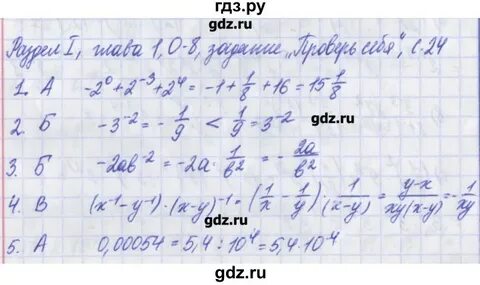 гдз.ру
gdz.ru
Раздел I, глава 1, О-8, задание „Проверь себя", с.24
1. А -2⁰+2⁻³+2⁴=-1+1/8+16=15 1/8
gdz.ru
2. Б -3⁻²=-1/9 < 1/9=3⁻²
3. Б -2ab⁻²=-2a·1/b²=-2a/b²
4. В (x⁻¹-y⁻¹)·(x-y)⁻¹=(1/x-1/y)·1/(x-y)=y-x/xy(x-y)=-1/xy
gdz.ru
5. А 0,00054=5,4:10⁴=5,4·10⁻⁴
gdz.ru